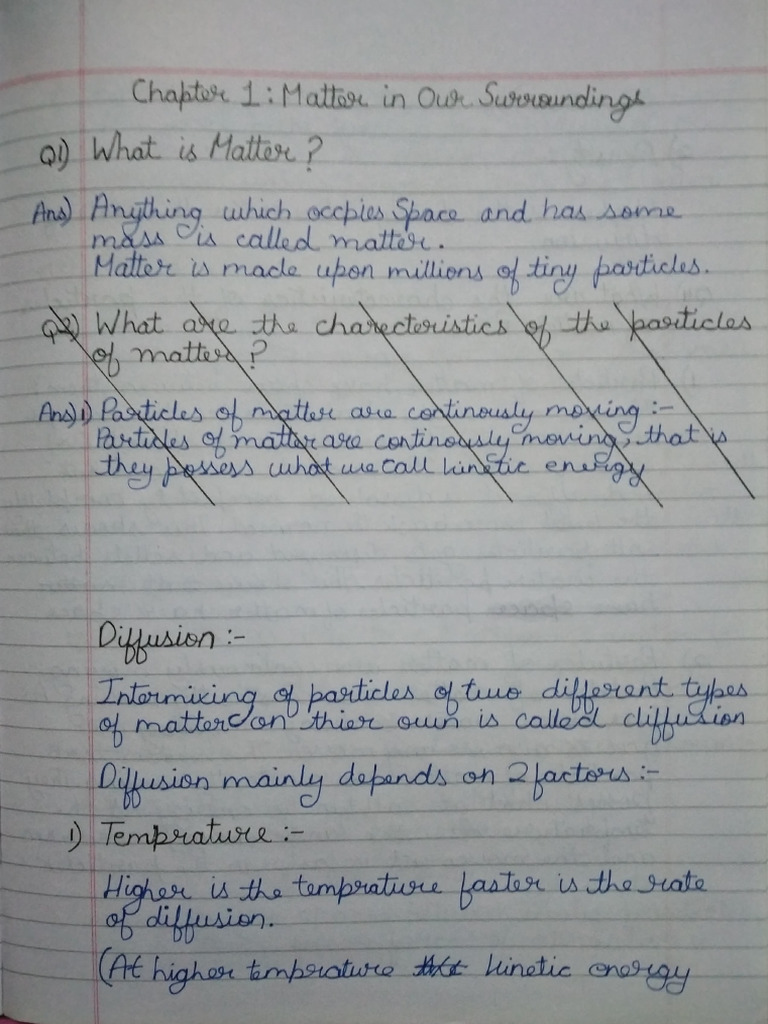 Chapter 1: Matter in Our Surroundings
Q1) What is Matter?
Ans) Anything which occpies Space and has some
mass is called matter.
Matter is made upon millions of tiny particles.
Q2) What are the charecteristics of the particles
of matter?
Ans) 1) Particles of matter are continously moving :-
Particles of matter are continously moving, that is
they possess what we call kinetic energy
Diffusion :-
Intermixing of particles of two different types
of matter on thier own is called diffusion
Diffusion mainly depends on 2 factors :-
1) Temprature :-
Higher is the temprature faster is the rate
of diffusion.
(At higher temprature kinetic energy